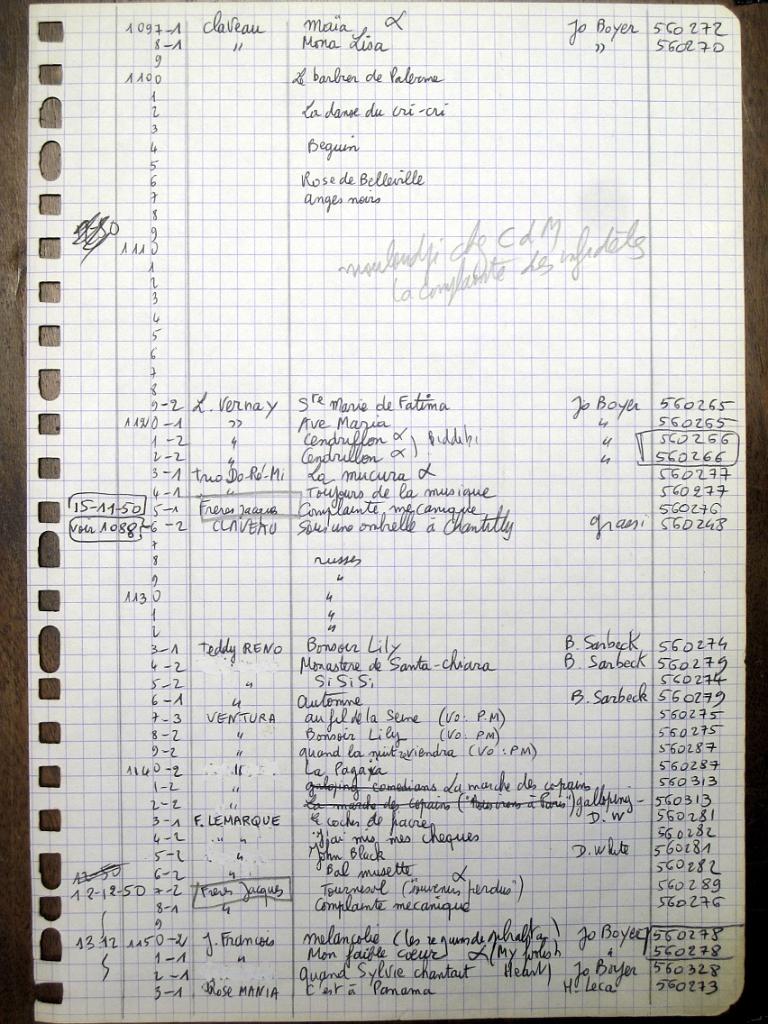 1097-1 Claveau Maïa α Jo Boyer 560272
8-1 " Mona Lisa " 560270
9
1100 Le barbier de Palerme
1
2 La danse du cri-cri
3
4 Beguin
5
6 Rose de Belleville
7 anges noirs
8
9
1110
mouloudji chez CdM
1
la complainte des infidèles
2
3
4
5
6
7
8
9-2 L. Vernay Ste Marie de Fatima Jo Boyer 560265
1120-1 " Ave Maria " 560265
1-2 " Cendrillon α ) Biddibi " 560266
2-2 " Cendrillon α ) " 560266
3-1 Trio Do-Ré-Mi La mucura α 560277
4-1 " Toujours de la musique 560277
15-11-50 5-1 Freres Jacques Complainte mecanique 560276
voir 1088 6-2 CLAVEAU Sous une ombrelle à Chantilly grassi 560248
7
8 russes
9 "
1130 "
1 "
2 "
3-1 Teddy RENO Bonsoir Lily B. Sarbeck 560274
4-2 Monastere de Santa-chiara B. Sarbeck 560279
5-2 " Si Si Si 560274
6-1 " Automne B. Sarbeck 560279
7-3 VENTURA au fil de la Seine (Vo: P.M) 560275
8-2 " Bonsoir Lily (Vo: PM) 560275
9-2 " quand la nuit reviendra (Vo: PM) 560287
1140-2 " La Pagaïa 560287
1-2 " galoping comedians La marche des copains 560313
2-2 " La marche des copains galloping - 560313
3-1 F. LEMARQUE D. W 560281
4-2 " " J'ai mis mes 560282
5-2 " John Black D. White 560281
12-50 6-2 " Bal musette 560282
12-12-50 7-2 Freres Jacques Tournesol α ("souvenirs perdus") 560289
8-1 " Complainte mecanique 560276
9
13.12 1150-2 J. Francois melancolie Jo Boyer 560278
1-1 " Mon faible coeur α (My foolish " 560278
2-1 " quand Sylvie chantait Heart) Jo Boyer 560328
3-1 Rose MANIA C'est à Panama H. Leca 560273